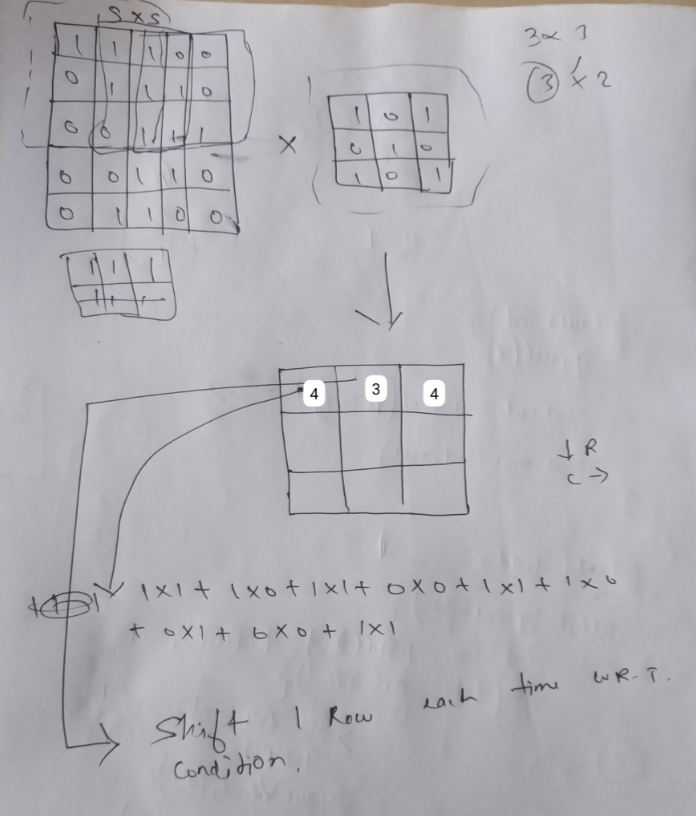 5 x 5
3 x 3
3 x 2
1 1 1 0 0
0 1 1 1 0
0 0 1 1 1
0 0 1 1 0
0 1 1 0 0
x
1 0 1
0 1 0
1 0 1
1 1 1
4 3 4
↓ R
C →
1x1 + 1x0 + 1x1 + 0x0 + 1x1 + 1x0
+ 0x1 + 0x0 + 1x1
Shift 1 Row each time W.R.T.
Condition.